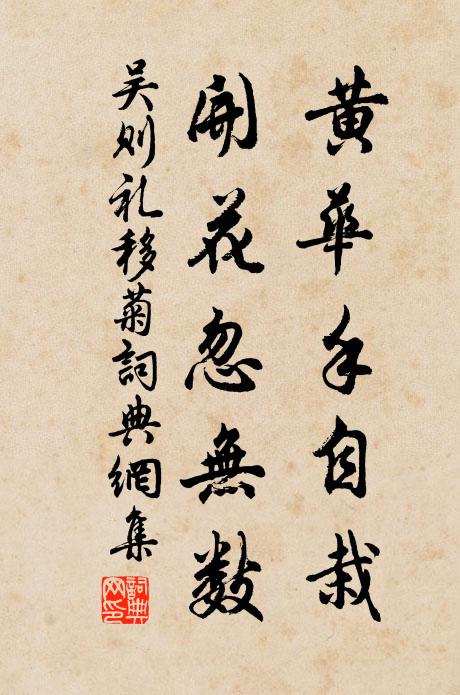 黄華手自栽
開花忽無数
吴则礼移菊詞典網集
詞典网印